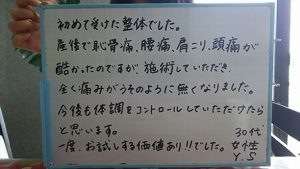 初めて受けた整体でした。
産後で恥骨痛、腰痛、肩こり、頭痛が
酷かったのですが、施術していただき、
全く痛みがうそのように無くなりました。
今後も体調をコントロールしていただけたら
と思います。
30代
一度、お試しする価値あり!!でした。女性
Y.S